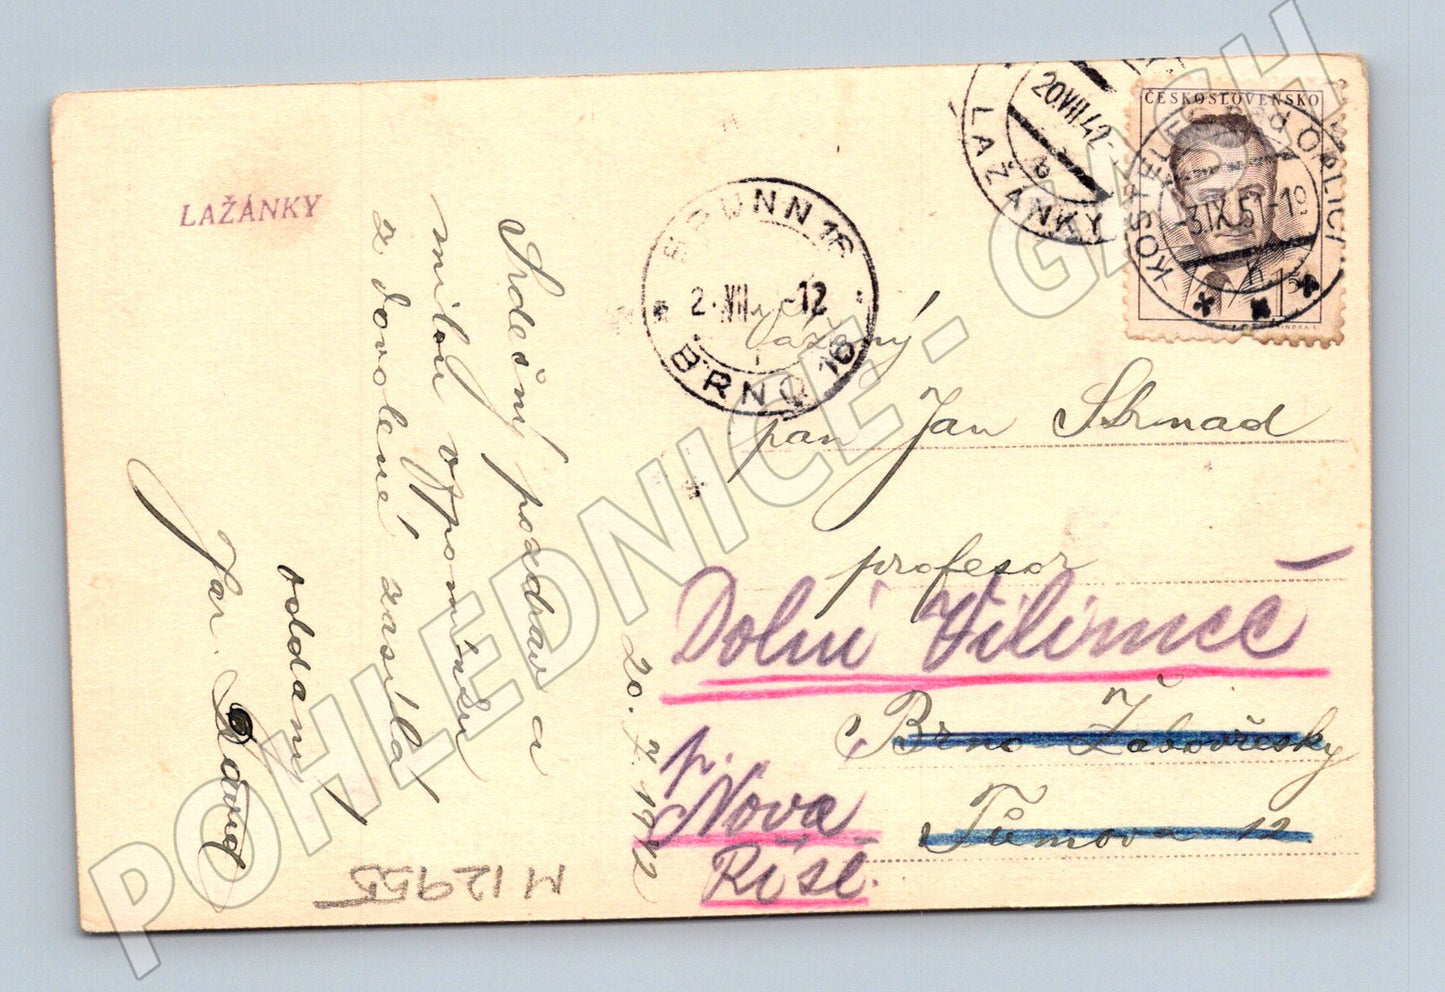 LAŽÁNKY
Srdečný pozdrav a
milou vzpomínku
z dovolené zasílá
oddaný
Jar. David
20. 7. 1942
M 12955
BRÜNN 16
2. VII -12
BRNO 16
20.VII 42
LAŽÁNKY
ČESKOSLOVENSKO
KOSTELEC nad ORLICÍ
-3.IX.51-19
Vážený
pan Jan Strnad
profesor
Dolní Vilímeč
Brno Žabovřesky
p. Nová
Tůmova 12
Říše.
POHLEDNICE - GMSH